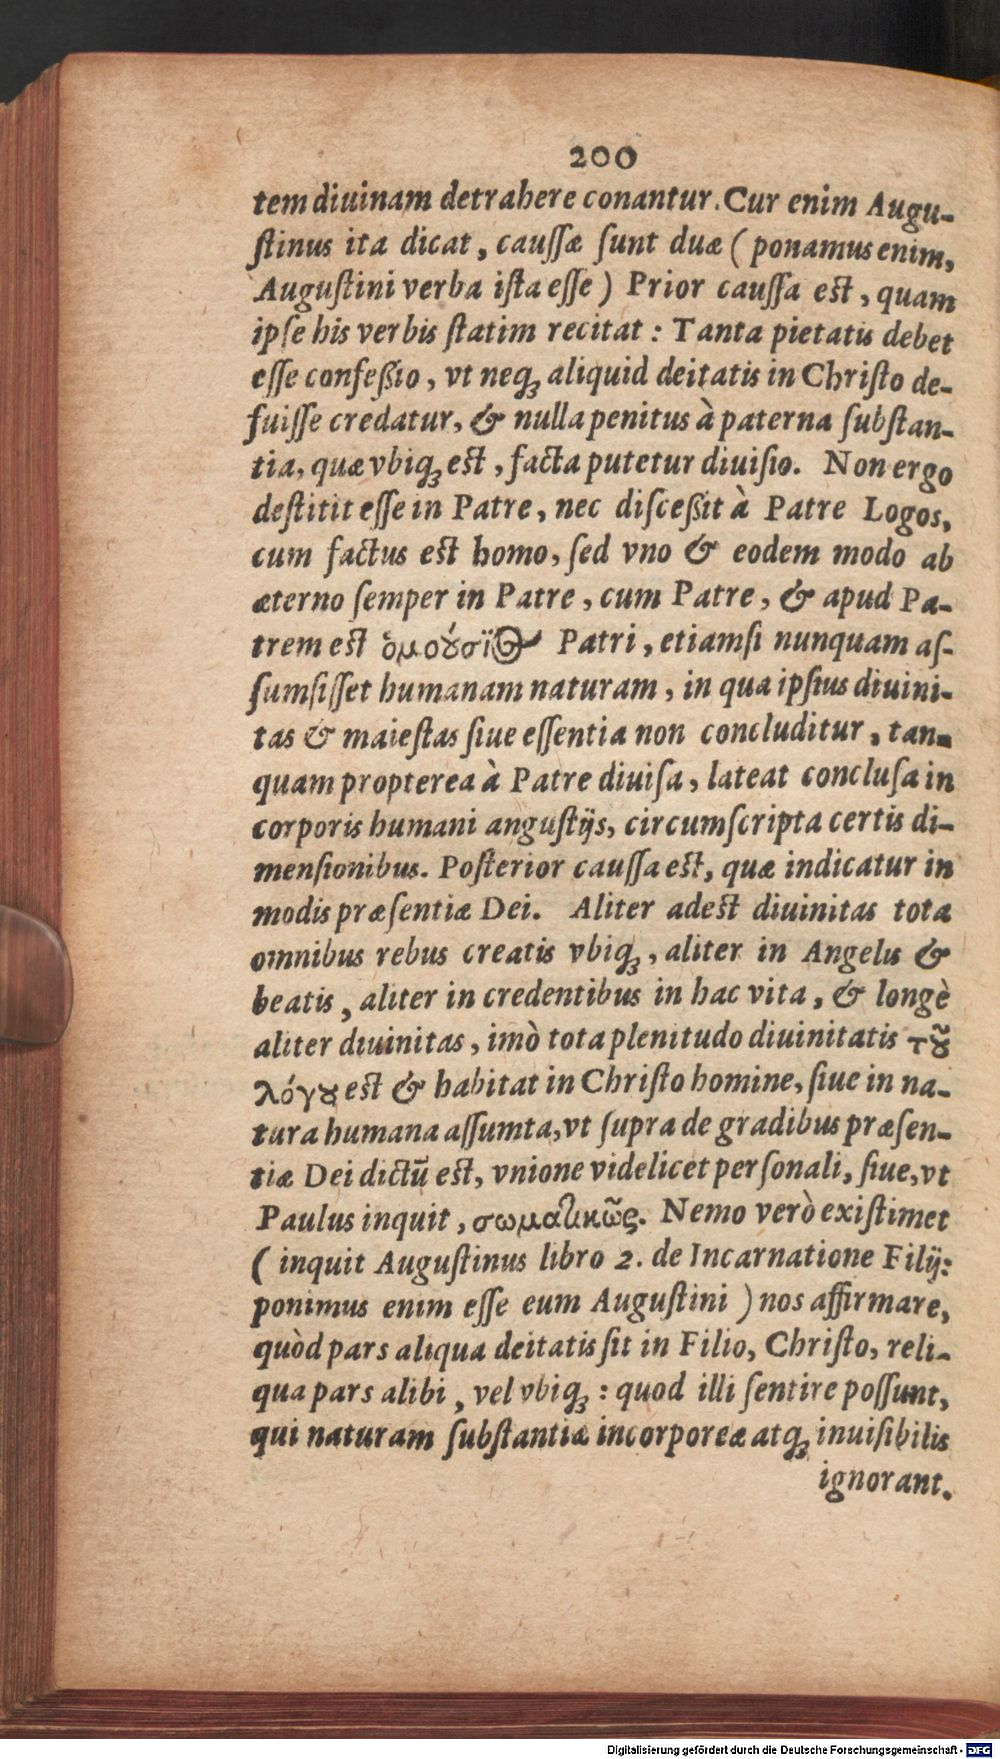 200
tem diuinam detrahere conantur. Cur enim Augu-
ſtinus ita dicat, cauſſæ ſunt duæ (ponamus enim,
Auguſtini verba iſta eſſe) Prior cauſſa eſt, quam
ipſe his verbis ſtatim recitat: Tanta pietatis debet
eſſe confeßio, vt neqꝫ aliquid deitatis in Chriſto de-
fuiſſe credatur, & nulla penitus à paterna ſubſtan-
tia, quæ vbiqꝫ eſt, facta putetur diuiſio. Non ergo
deſtitit eſſe in Patre, nec diſceßit à Patre Logos,
cum factus eſt homo, ſed vno & eodem modo ab
æterno ſemper in Patre, cum Patre, & apud Pa-
trem eſt ὁμούσϊος Patri, etiamſi nunquam aſ-
ſumſiſſet humanam naturam, in qua ipſius diuini-
tas & maieſtas ſiue eſſentia non concluditur, tan-
quam propterea à Patre diuiſa, lateat concluſa in
corporis humani anguſtijs, circumſcripta certis di-
menſionibus. Poſterior cauſſa eſt, quæ indicatur in
modis præſentiæ Dei. Aliter adeſt diuinitas tota
omnibus rebus creatis vbiqꝫ, aliter in Angelis &
beatis, aliter in credentibus in hac vita, & longè
aliter diuinitas, imò tota plenitudo diuinitatis τȣ͂
λόγȣ eſt & habitat in Chriſto homine, ſiue in na-
tura humana aſſumta, vt ſupra de gradibus præſen-
tiæ Dei dictū eſt, vnione videlicet perſonali, ſiue, vt
Paulus inquit, σωματικῶς. Nemo verò exiſtimet
( inquit Auguſtinus libro 2. de Incarnatione Filij:
ponimus enim eſſe eum Auguſtini ) nos affirmare,
quòd pars aliqua deitatis ſit in Filio, Chriſto, reli-
qua pars alibi, vel vbiqꝫ: quod illi ſentire poſſunt,
qui naturam ſubſtantiæ incorporeæ atqꝫ inuiſibilis
ignorant.
Digitalisierung gefördert durch die Deutsche Forschungsgemeinschaft - DFG